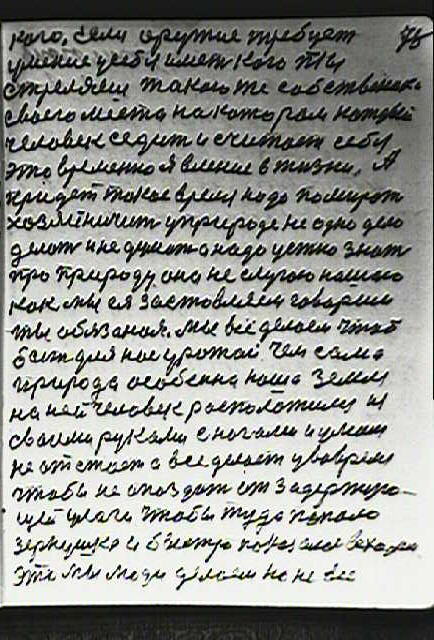 кого, если оружие требует 78
умение
стреляем такого же собственика
своего места на котором каждый
человек сидит и считает себе
это временно явление в жизни, А
придет такое время надо помирать
природе не одно дело
делат и не думат а надо уетно знат
про природу она не слугою нашаю
как мы ея заставляем говорим
ты обязаная. мы все делаем чтоб
был для нас урожай. Чем сама
природа особенна наша Земля
на ней человек расположился и
своими руками с ногами и умом
не отстает а все делает уваврем
чтобы не опоздат от задержаю-
щей влаги чтобы туда попало
зернушко и быстро показалс
эти мы люди делаем но не все